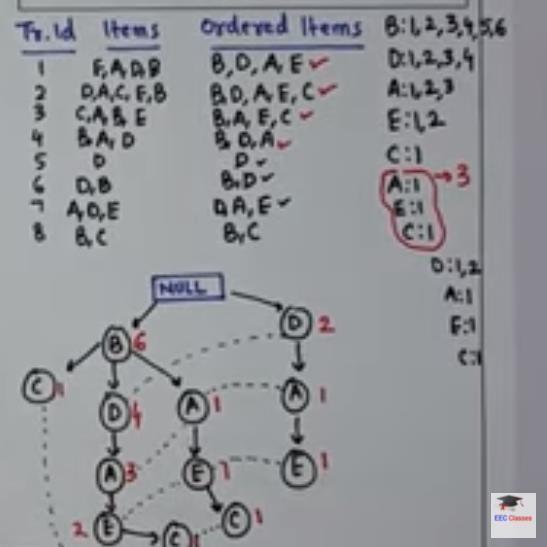 Tr.Id Items Ordered Items
1 E,A,D,B B,D,A,E
2 D,A,C,E,B B,D,A,E,C
3 C,A,B,E B,A,E,C
4 B,A,D B,D,A
5 D D
6 D,B B,D
7 A,D,E D,A,E
8 B,C B,C
B:1,2,3,4,5,6
D:1,2,3,4
A:1,2,3
E:1,2
C:1
A:1 → 3
E:1
C:1
D:1,2
A:1
E:1
C:1
NULL
B 6 D 2
C 1 D 4 A 1 A 1
A 3 E 1 E 1
2 E C 1 C 1
EEC Classes